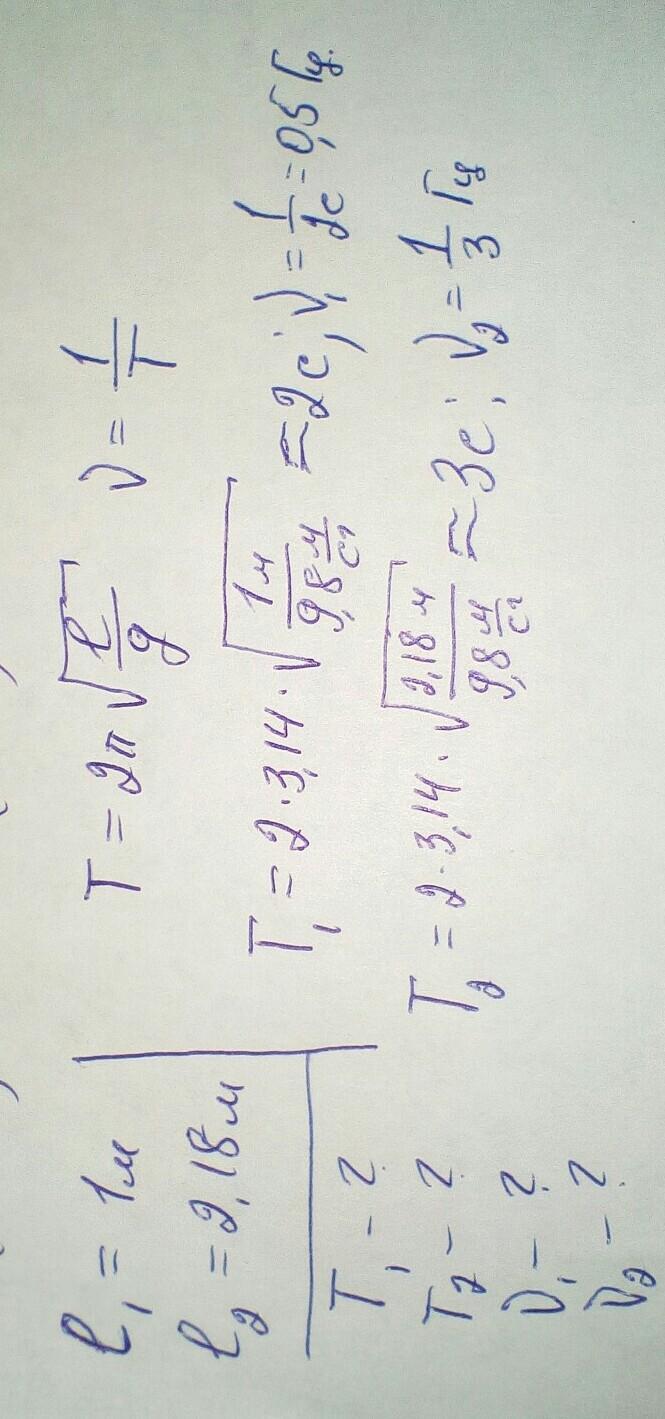 ℓ₁ = 1м
ℓ₂ = 2,18м
T₁ – ?
T₂ – ?
ν₁ – ?
ν₂ – ?
T = 2π√(ℓ/g) ν = 1/T
T₁ = 2·3,14·√(1м/9,8 м/с²) ≈ 2с; ν₁ = 1/2с = 0,5 Гц.
T₂ = 2·3,14·√(2,18 м/9,8 м/с²) ≈ 3с; ν₂ = 1/3 Гц